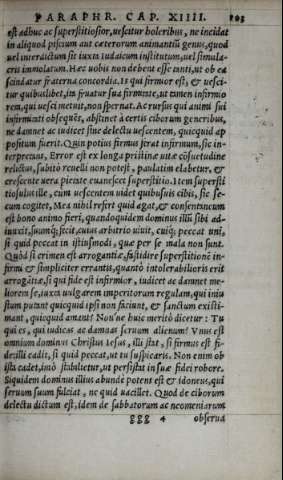 PARAPHR. CAP. XIIII. 103
est adhuc ac superstitiosior, uescitur holeribus, ne incidat
in aliquod piscium aut cæterorum animantiũ genus, quod
uel interdictum sit iuxta Iudaicum institutum, uel simula-
cris immolatum. Hæc uobis non debent esse tanti, ut ob ea
scindatur fraterna concordia. Is qui firmior est, & uesci-
tur quibuslibet, ita fruatur sua firmitate, ut tamen infirmio
rem, qui uesci metuit, non spernat. Ac rursus qui animi sui
infirmitati obsequẽs, abstinet à certis ciborum generibus,
ne damnet ac iudicet sine delectu uescentem, quicquid ap
positum fuerit. Quin potius firmus ferat infirmum, sic in-
terpretans, Error est ex longa pristinæ uitæ cõsuetudine
relictus, subitò reuelli non potest, paulatim elabetur, &
crescente uera pietate euanescet superstitio. Item supersti
tiosulus ille, cum uescentem uidet quibusuis cibis, sic se-
cum cogitet, Mea nihil refert quid agat, & consentaneum
est bono animo fieri, quandoquidem dominus illũ sibi ad-
iunxit, suumq; fecit, cuius arbitrio uiuit, cuiq; peccat uni,
si quid peccat in istiusmodi, quæ per se mala non sunt.
Quòd si crimen est arrogantiæ, fastidire superstitione in-
firmi & simpliciter errantis, quantò intolerabilioris erit
arrogãtiæ, si qui fide est infirmior, iudicet ac damnet me-
liorem se, iuxta uulgarem imperitorum regulam, qui iniu
stum putant quicquid ipsi non faciunt, & sanctum existi-
mant, quicquid amant? Non'ne huic meritò dicetur: Tu
qui es, qui iudicas ac damnas seruum alienum? Vnus est
omnium dominus Christus Iesus, illi stat, si firmus est fi-
de: illi cadit, si quid peccat, ut tu suspicaris. Non enim ob
ista cadet, imò stabilietur, ut persistat in suæ fidei robore.
Siquidem dominus illius abunde potens est & idoneus, qui
seruum suum fulciat, ne quid uacillet. Quod de ciborum
delectu dictum est, idem de sabbatorum ac neomeniarum
ggg 4 obserua